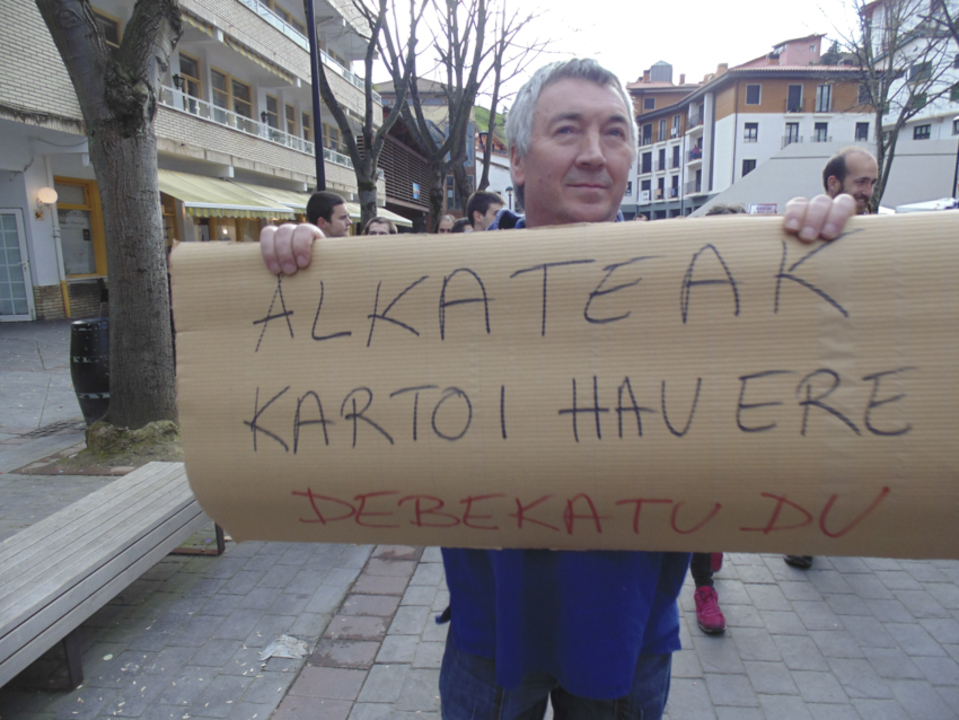 ALKATEAK
KARTOI HAU ERE
DEBEKATU DU